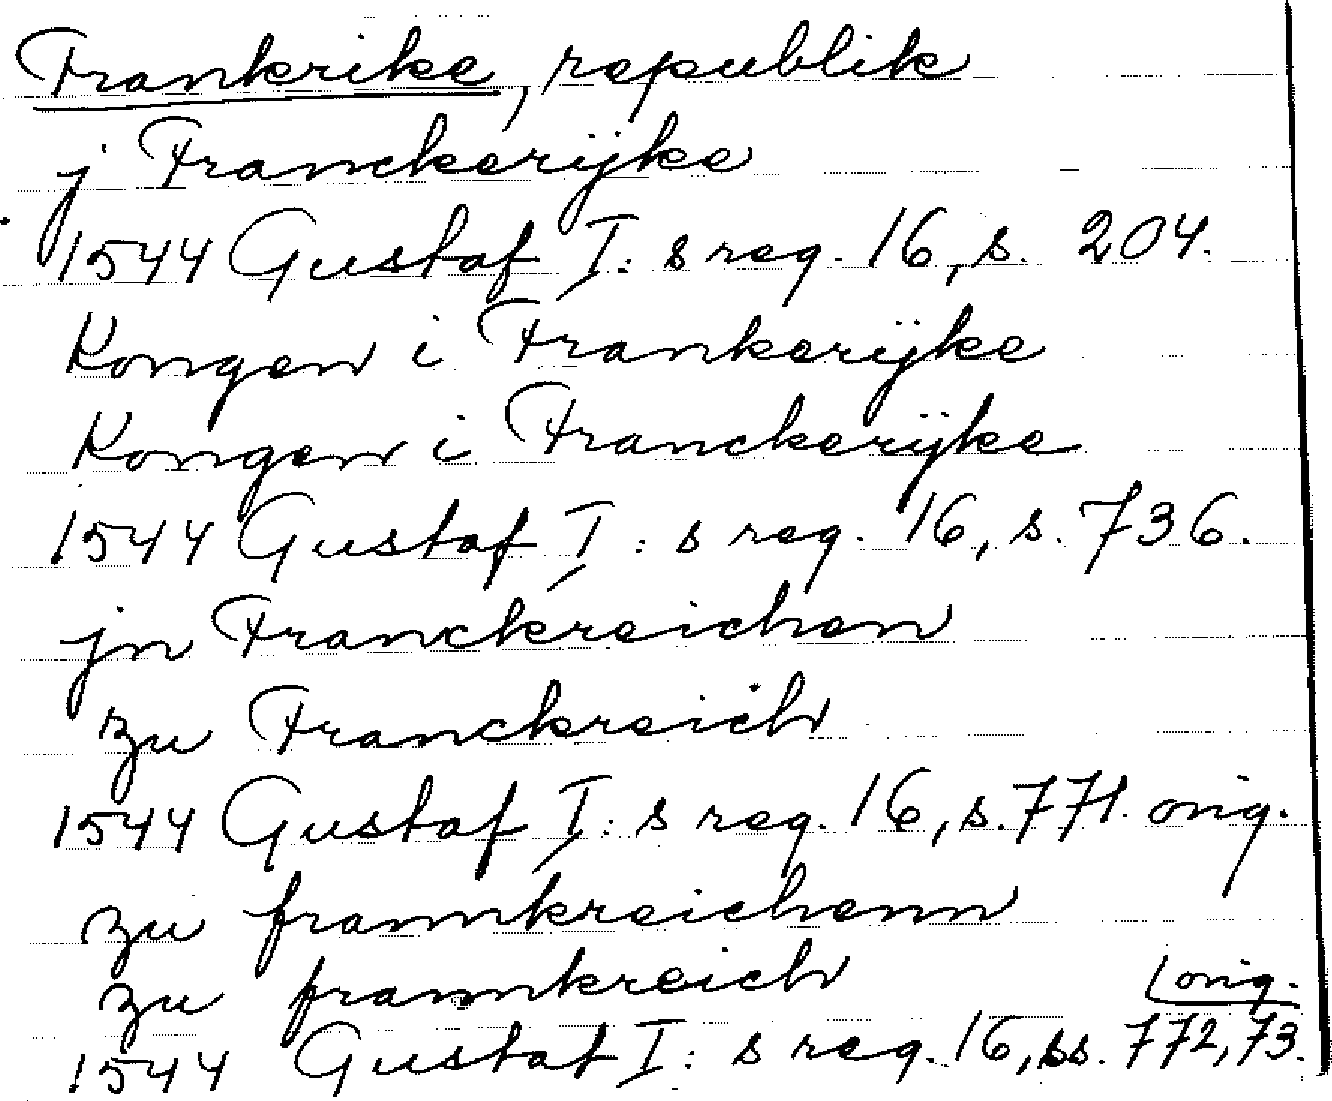 Frankrike, republik
j Franckerijke
1544 Gustaf I: s reg. 16, s. 204.
Kongen i Frankerijke
Kongen i Franckerijke
1544 Gustaf I: s reg. 16, s. 736.
jn Franckreichen
zu Franckreich
1544 Gustaf I: s reg. 16, s. 771. orig.
zu frannkreichenn
zu frannkreich
orig.
1544 Gustaf I: s reg. 16, ss. 772, 73.